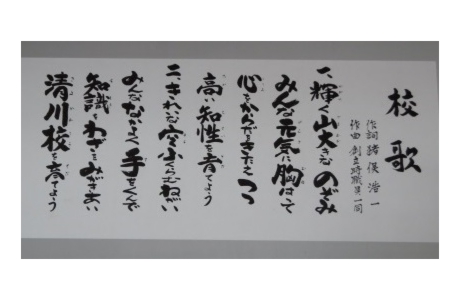 校歌
作詞 猪俣浩一
作曲 創立時職員一同
一、輝く山大きな のぞみ
みんな元気に胸はって
心をからだをきたえつつ
高い知性を育てよう
二、きれいな空ふくらむねがい
みんななかよく手をくんで
知識をわざをみがきあい
清川校を育てよう